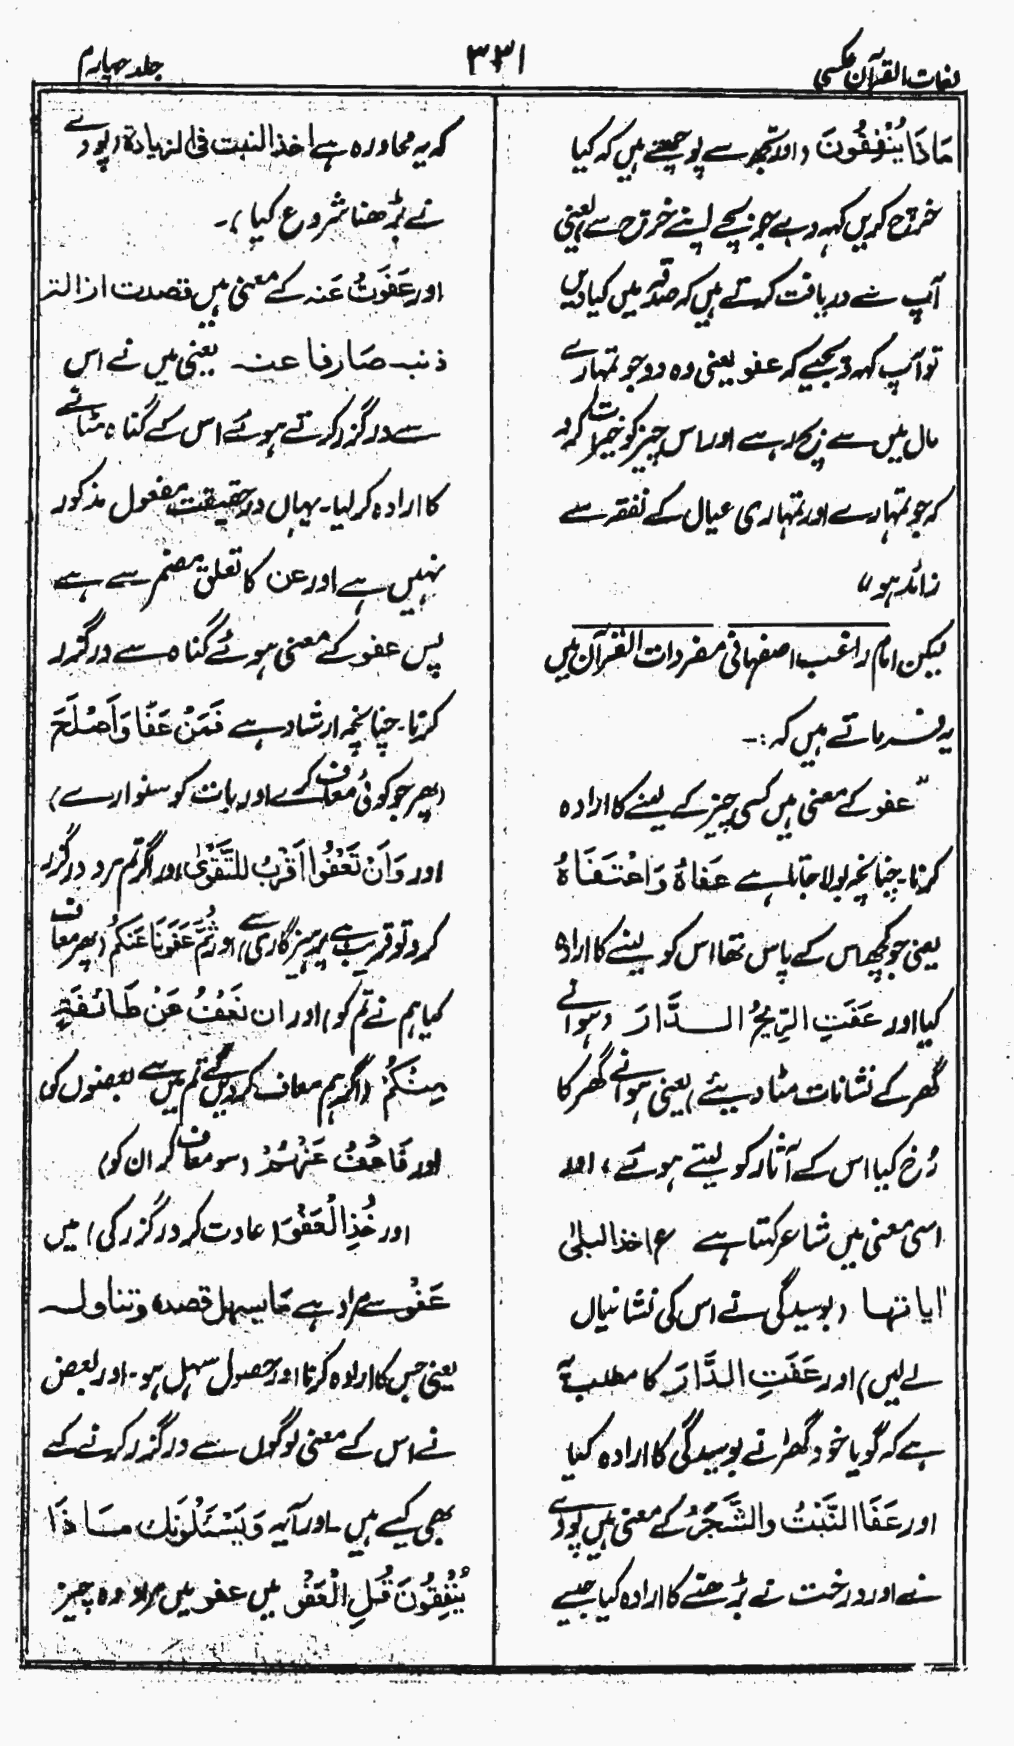 لغات القرآن عکسی
۳۳۱
جلد چہارم
مَاذَا یُنْفِقُونَ (اور تجھ سے پوچھتے ہیں کہ کیا
خرچ کریں کہہ دے جو بچے اپنے خرچ سے) یعنی
آپ سے دریافت کرتے ہیں کہ صدقہ میں کیا دیں
تو آپ کہہ دیجیے کہ عفو یعنی وہ دو جو تمہارے
مال میں سے بچ رہے اور اس چیز کو خیرات کرو
کہ جو تمہارے اور تمہاری عیال کے نفقہ سے
زائد ہو"
لیکن امام راغب اصفہانی مفردات القرآن میں
یہ فرماتے ہیں کہ :-
"عفو کے معنی ہیں کسی چیز کے لینے کا ارادہ
کرنا۔ چنانچہ بولا جاتا ہے عَفَاہُ وَاعْتَفَاہُ
یعنی جو کچھ اس کے پاس تھا اس کو لینے کا ارادہ
کیا اور عَفَتِ الرِّیْحُ الدَّارَ (ہوا نے
گھر کے نشانات مٹا دیئے) یعنی ہوا نے گھر کا
رُخ کیا اس کے آثار کو لیتے ہوئے، اور
اسی معنی میں شاعر کہتا ہے ع اخذ البلیٰ
ایا تہا (بوسیدگی نے اس کی نشانیاں
لے لیں) اور عَفَتِ الدَّارَ کا مطلب یہ
ہے کہ گویا خود گھر نے بوسیدگی کا ارادہ کیا
اور عَفَا النَّبْتُ والشَّجَرُ کے معنی ہیں پودے
نے اور درخت نے بڑھنے کا ارادہ کیا جیسے
کہ یہ محاورہ ہے اخذ النبت فی الزیادۃ (پودے
نے بڑھنا شروع کیا)۔
اور عَفَوتُ عَنہ کے معنی ہیں قصدت ازالتہ
ذنبہ صَارفا عنہ یعنی میں نے اس
سے درگزر کرتے ہوئے اس کے گناہ مٹانے
کا ارادہ کر لیا۔ یہاں درحقیقت مفعول مذکور
نہیں ہے اور عن کا تعلق مضمر سے ہے
پس عفو کے معنی ہوئے گناہ سے درگزر
کرنا۔ چنانچہ ارشاد ہے فَمَنْ عَفَا وَاَصْلَحَ
(پھر جو کوئی معاف کرے اور بات کو سنوارے)
اور وَاَنْ تَعْفُوا اَقْرَبُ للتَّقوٰی (اور اگر تم مرد درگزر
کرو تو قریب ہے پرہیزگاری سے) اور ثُمَّ عَفَوْنَا عَنکُم (پھر معاف
کیا ہم نے تم کو) اور ان نَعْفُ عَنْ طَائفَةٍ
مِنْکُمْ (اگر ہم معاف کر دیں گے تم میں سے بعضوں کو)
اور فَاعْفُ عَنْہُمْ (سو معاف کر ان کو)
اور خُذِ الْعَفْوَ (عادت کر درگزر کی) میں
عَفْو سے مراد ہے مَا یسہل قصدہ وتناولہ
یعنی جس کا ارادہ کرنا اور حصول سہل ہو۔ اور بعض
نے اس کے معنی لوگوں سے درگزر کرنے کے
بھی کیے ہیں۔ اور آیہ وَیَسْئَلُوْنَكَ مَاذَا
یُنْفِقُوْنَ قُلِ الْعَفْوَ میں عفو سے مراد وہ چیز